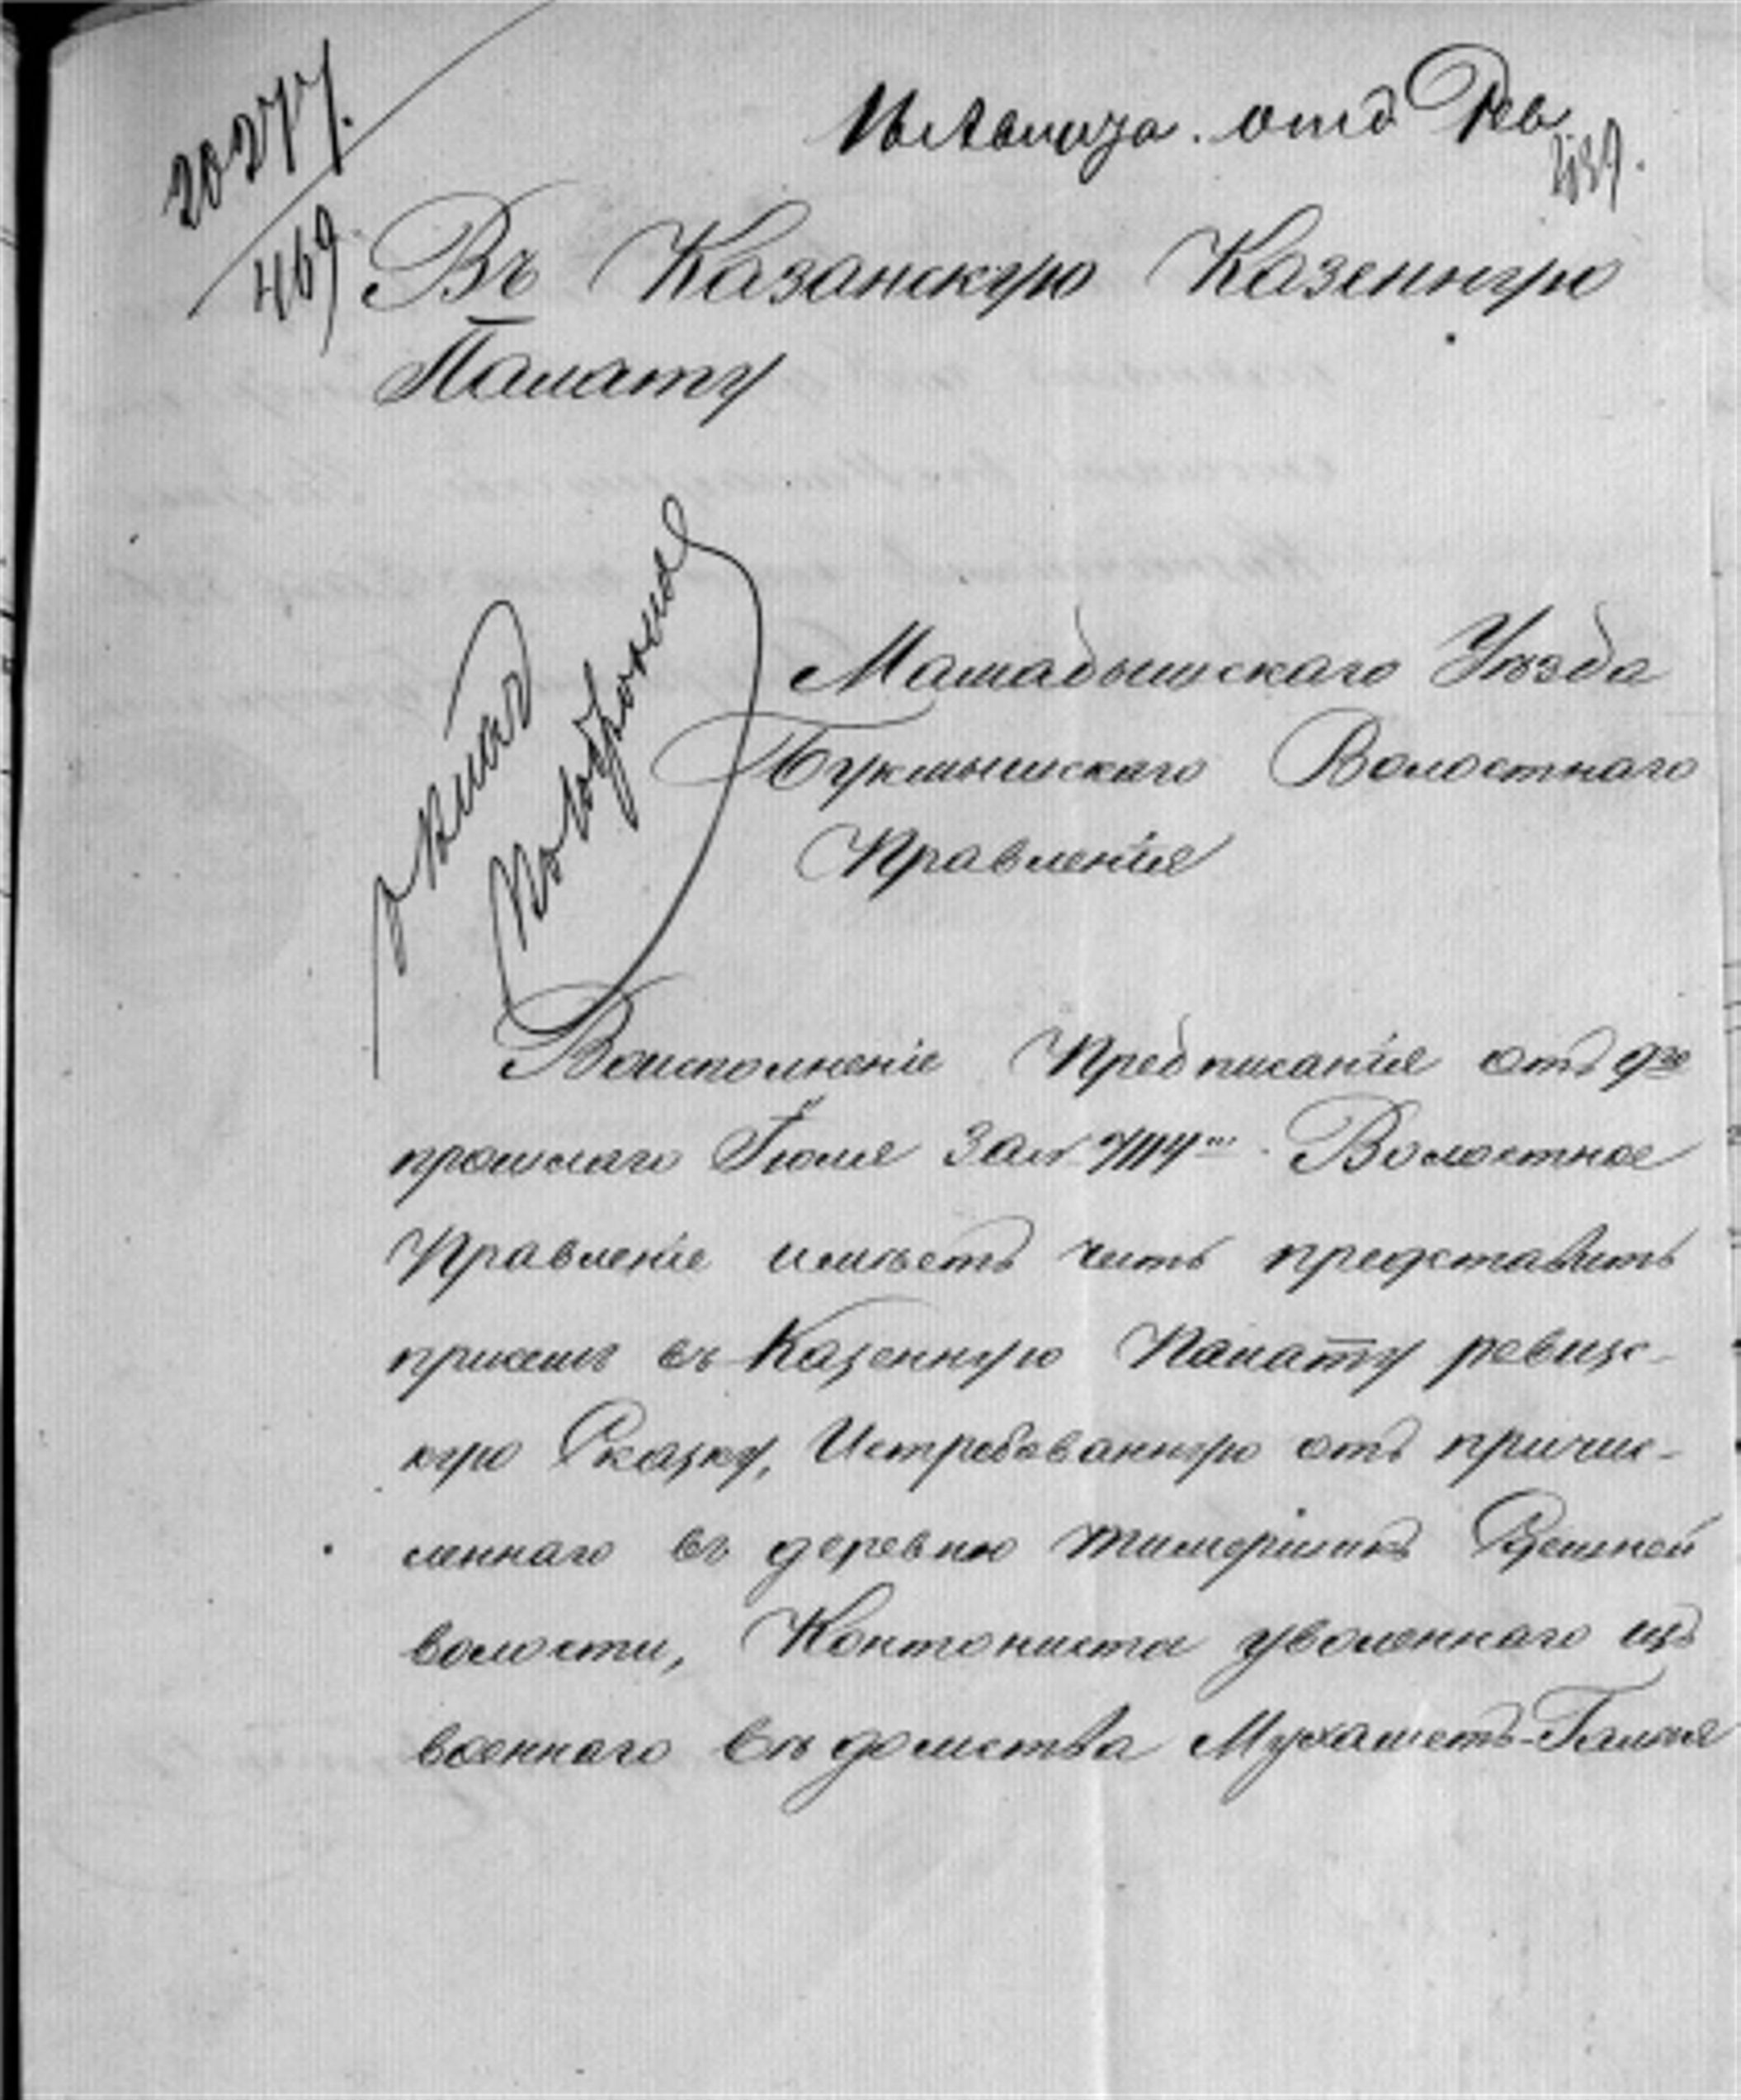 20277.
469
16 Августа. отд Рев
Въ Казанскую Казенную
Палату
Мамадышскаго Уѣзда
Букмышскаго Волостнаго
Правленія
Воисполненіе Предписанія отъ 9го
прошлаго Іюля за №
Волостное
Правленіе имѣетъ честь представить
присемъ въ Казенную Палату ревизс-
кую Сказку, Истребованную отъ причис-
леннаго въ деревню
волости, Контониста уволеннаго изъ
военнаго вѣдомства Мухаметъ-Галія